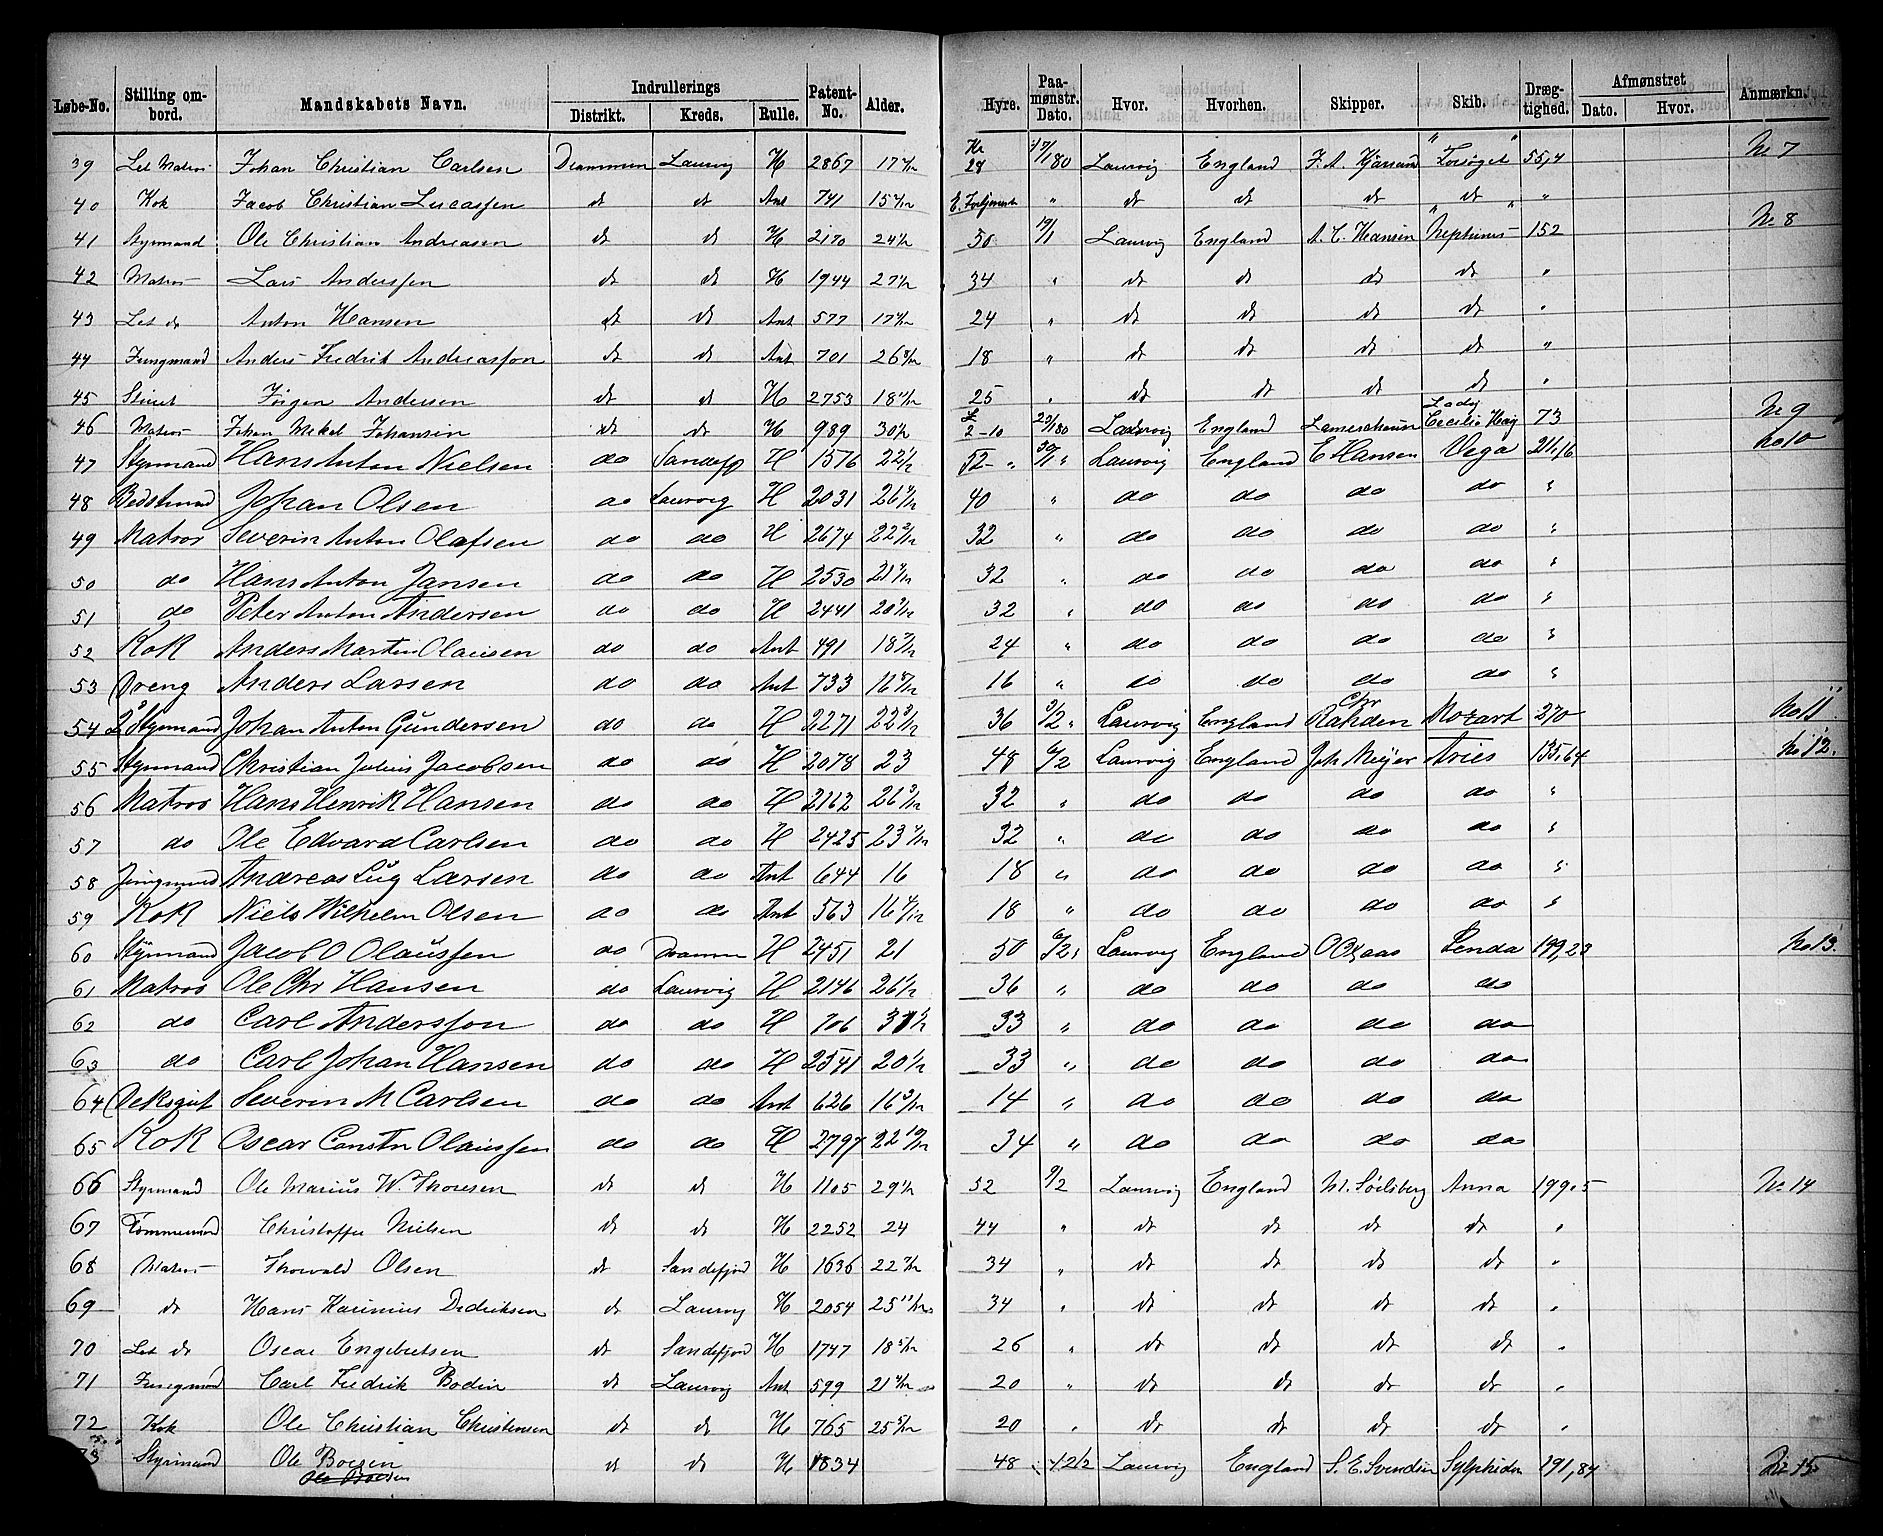 Løbe-No. Stilling ombord. Mandskabets Navn. Indrullerings Distrikt. Kreds. Rulle. Patent-No. Alder. Hyre. Paamønstr. Dato. Hvor. Hvorhen. Skipper. Skib. Drægtighed. Afmønstret Dato. Hvor. Anmærkn.
39 Let Matros Johan Christian Carlsen Drammen Laurvig H 2867 Kr 28 17/1 80 Laurvig England "Forsøget" 55,4 No 7
40 Kok Jacob Christian Lucassen dt dt Ant 741 " dt dt dt dt "
41 Styrmand Ole Christian Andreasen dt dt H 2170 50 19/1 Laurvig England A. C. Hansen "Neptunus" 152 No 8
42 Matros Lars Anderssen dt dt H 1944 34 " dt dt dt dt "
43 Let do Anton Hansen dt dt Ant 577 24 " dt dt dt dt "
44 Jungmand Anders Fredrik Andreassen dt dt Ant 701 18 " dt dt dt dt "
45 Jørgen Andersen dt dt H 2753 25 " dt dt dt dt "
46 Matros Johan Mikal Johansen dt dt H 989 £ 2-10 Laurvig England Lady Cecilie 73 No 9
47 Styrmand Hans Anton Nielsen do Sandefj H 1576 52 - " 30/1 " Laurvig England E Hansen Vega 211,16 No 10
48 Bedstmand Johan Olsen do Laurvig H 2031 40 " do do do do "
49 Matros Severin Anton Olafsen do do H 2674 32 " do do do do "
50 do Hans Anton Jansen do do H 2530 32 " do do do do "
51 do Peter Anton Andersen do do H 2441 32 " do do do do "
52 Kok Anders Martin Olausen do do Ant 491 24 " do do do do "
53 Dreng Anders Larsen do do Ant 733 16 " do do do do "
54 2 Styrmand Johan Anton Gundersen do do H 2271 36 Laurvig England Chr Rahden Mozart 270 No 11.
55 Styrmand Christian Julius Jacobsen do do H 2078 23 48 6/2 Laurvig England Joh Meÿer Aries 135,64 No 12.
56 Matros Hans Henrik Hansen do do H 2162 32 " do do do do "
57 do Ole Edvard Carlsen do do H 2425 32 " do do do do "
58 Jungmand Andreas Lug Larsen do do Ant 644 16 18 " do do do do "
59 Kok Niels Wilhelm Olsen do do Ant 563 18 " do do do do "
60 Styrmand Jacob O Olaussen do Dramm H 2451 21 50 6/2 Laurvig England 199,23 No 13.
61 Matros Ole Chr Hansen do Laurvig H 2146 36 " do do do do
62 do Carl Anderssen do do H 706 33 " do do do do
63 do Carl Johan Hansen do do H 2541 33 " do do do do
64 Deksgut Severin M Carlsen do do Ant 626 14 " do do do do
65 Kok Oscar Constn Olaussen do do H 2797 34 " do do do do
66 Styrmand Ole Marius W. Thoresen dt dt H 1105 52 9/2 Laurvig England Anna 199.5 No 14
67 Tømmermd Christoffer Nielsen dt dt H 2252 24 44 " dt dt dt dt "
68 Matros Thorvald Olsen dt Sandefjord H 1636 34 " dt dt dt dt "
69 dt Hans Didriksen dt Laurvig H 2054 34 " dt dt dt dt "
70 Let do Oscar Engebretsen dt Sandefjord H 1747 26 " dt dt dt dt "
71 Jungmand Carl Fredrik Bodin dt Laurvig Ant 599 20 " dt dt dt dt "
72 Kok Ole Christian Christensen dt dt H 765 20 " dt dt dt dt "
73 Styrmand Ole Boesen dt dt H 1834 48 12/2 Laurvig England S. E. Svendsen Sylphiden 191,84 No 15